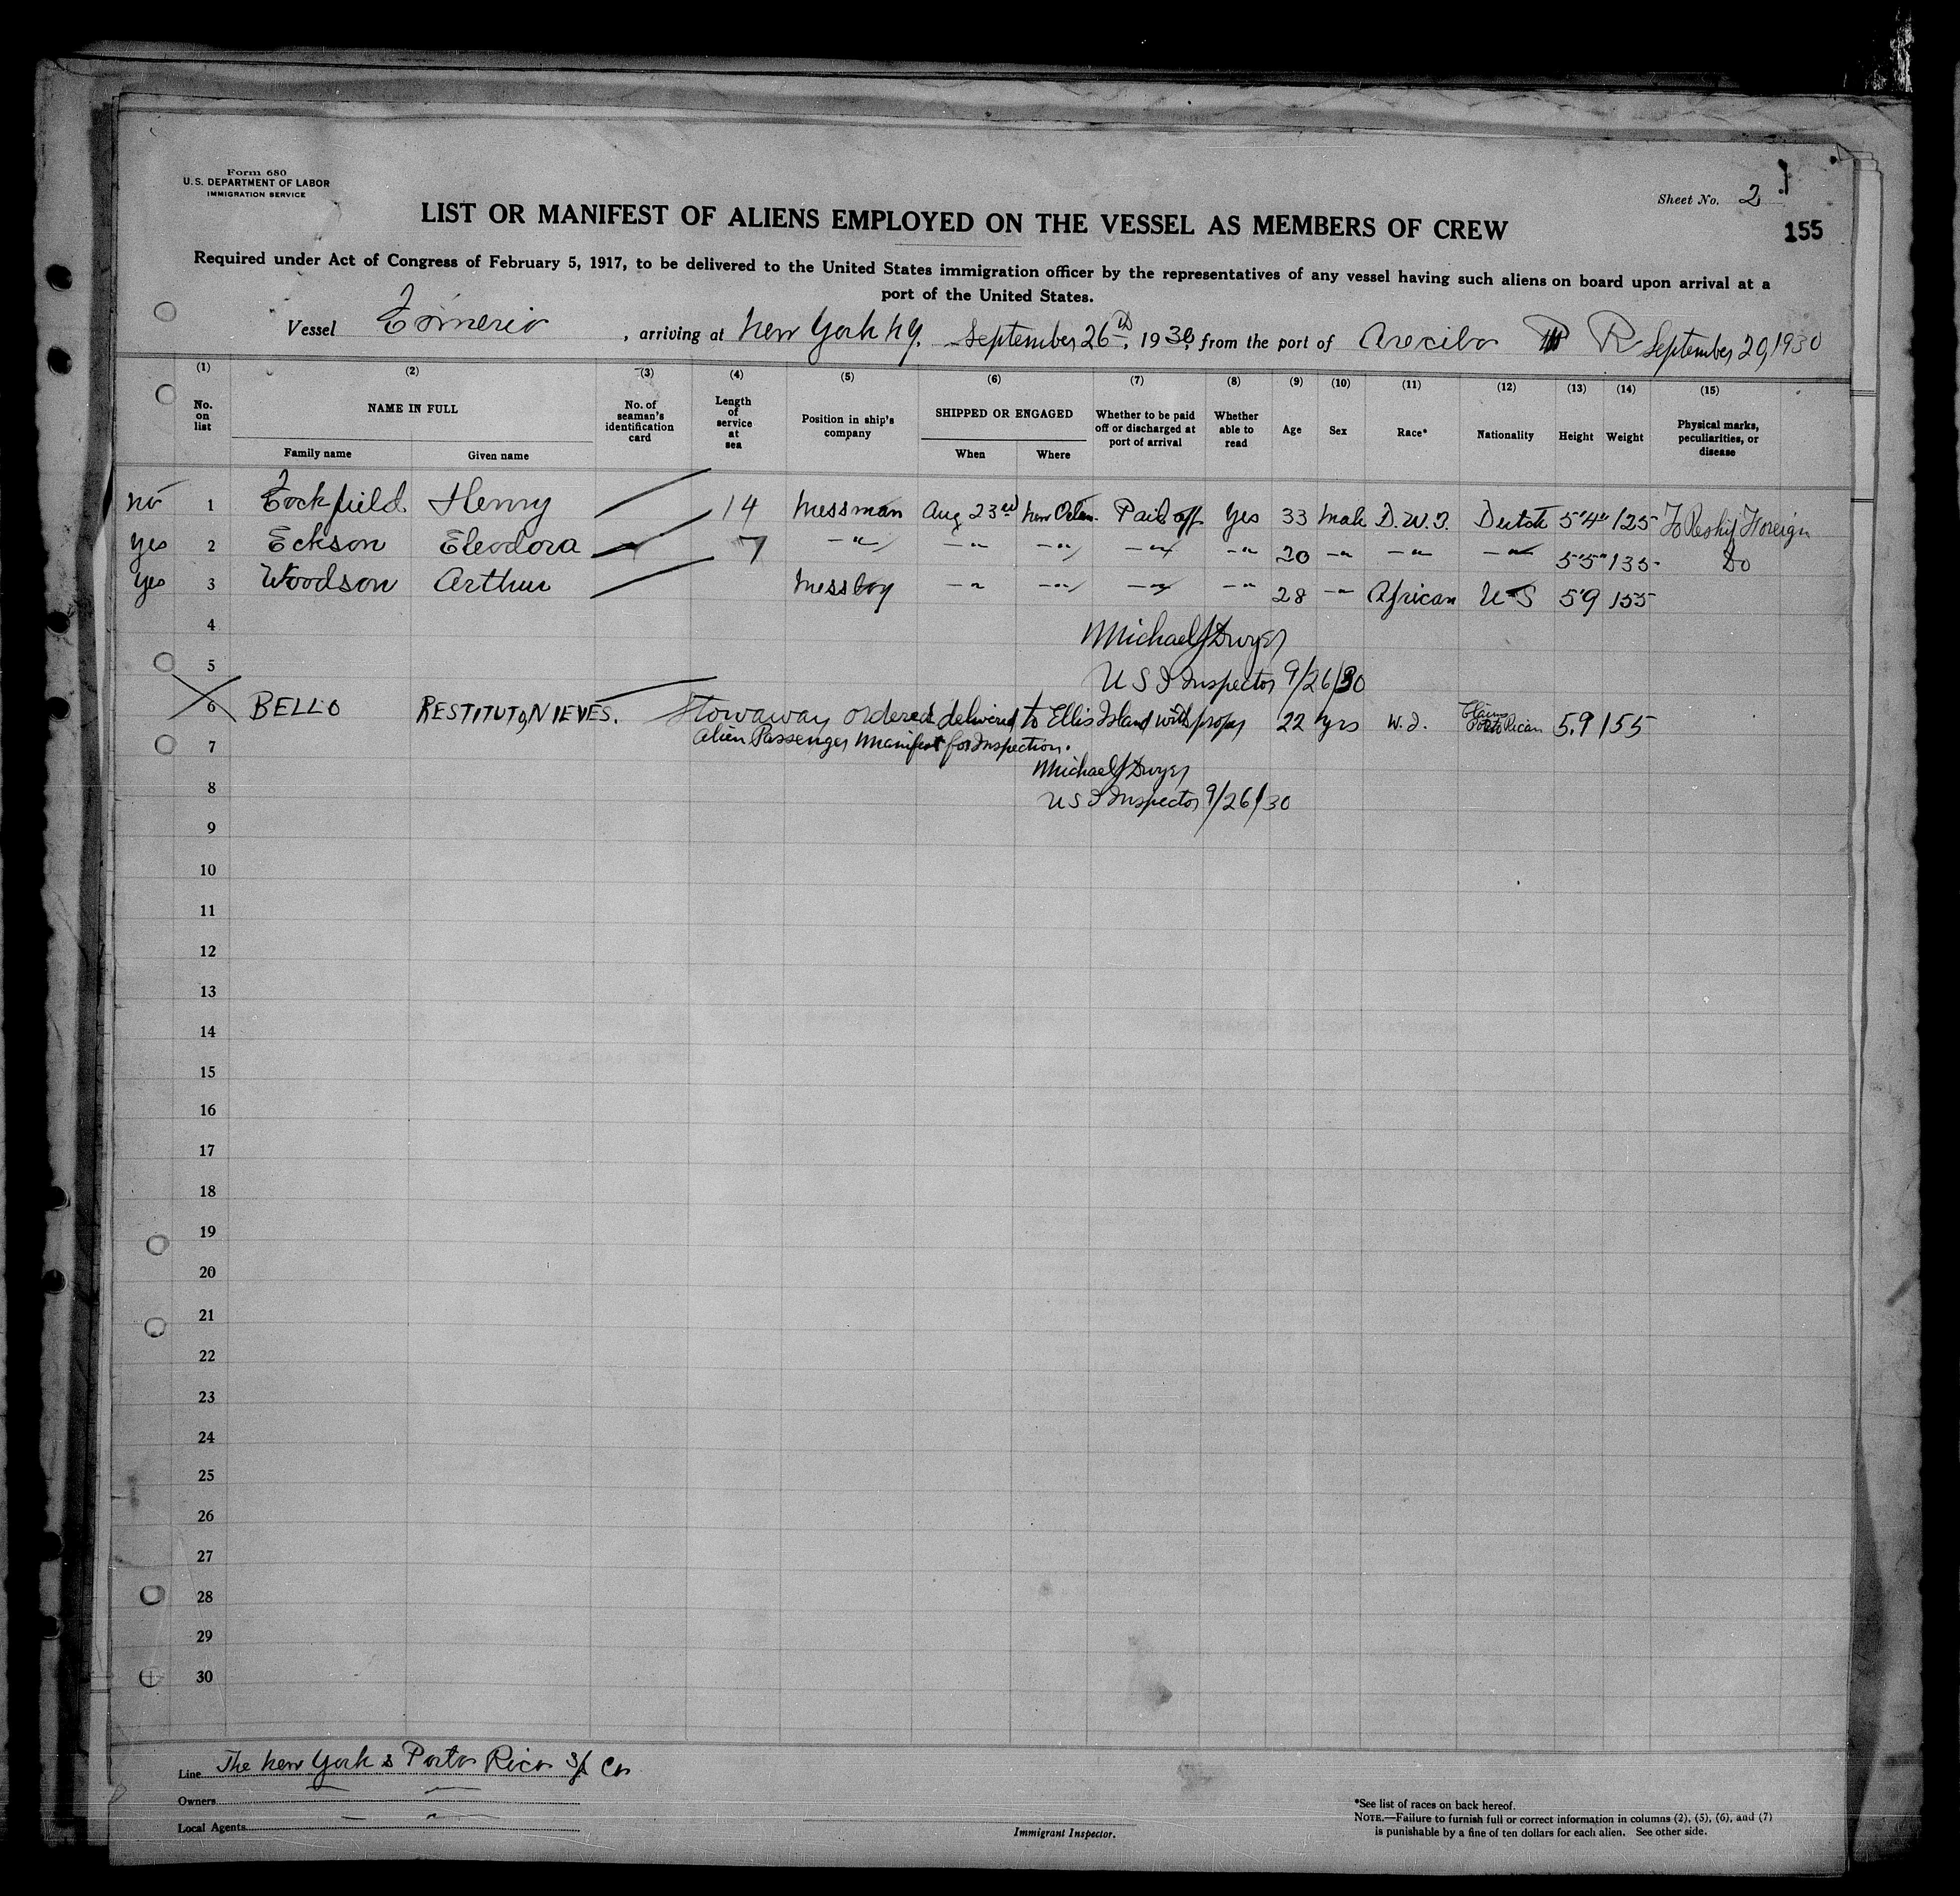 Form 680
U.S. DEPARTMENT OF LABOR
IMMIGRATION SERVICE
Sheet No. 2
155
LIST OR MANIFEST OF ALIENS EMPLOYED ON THE VESSEL AS MEMBERS OF CREW
Required under Act of Congress of February 5, 1917, to be delivered to the United States immigration officer by the representatives of any vessel having such aliens on board upon arrival at a
port of the United States.
Vessel , arriving at New York N.Y. September 26th, 1930, from the port of Arecibo P R September 20, 1930
(1) (2) (3) (4) (5) (6) (7) (8) (9) (10) (11) (12) (13) (14) (15)
No. on list NAME IN FULL Family name Given name No. of seaman's identification card Length of service at sea Position in ship's company SHIPPED OR ENGAGED When Where Whether to be paid off or discharged at port of arrival Whether able to read Age Sex Race* Nationality Height Weight Physical marks, peculiarities, or disease
no 1 Henry 14 Messman Aug 23rd New Orlen. Paid off Yes 33 Male D.W.I. Dutch 5'4" 125 To Reship Foreign
yes 2 Eckson Eleodora 7 -"- -"- -"- -"- -"- 20 -"- -"- -"- 5'5" 135 Do
yes 3 Woodson Arthur Messboy -"- -"- -"- -"- 28 -"- African U S 5'9 155
4 Michael J Dwyer
5 U S I Inspector 9/26/30
6 BELLO RESTITUTO NIEVES. Stowaway ordered delivered to Ellis Island with proper 22 yrs W.I. Claims Porto Rican 5.9 155
7 Alien Passenger Manifest for Inspection.
Michael J Dwyer
8 U S I Inspector 9/26/30
9
10
11
12
13
14
15
16
17
18
19
20
21
22
23
24
25
26
27
28
29
30
Line The New York & Porto Rico S/S Co
Owners -"-
Local Agents -"-
Immigrant Inspector.
*See list of races on back hereof.
NOTE.—Failure to furnish full or correct information in columns (2), (5), (6), and (7)
is punishable by a fine of ten dollars for each alien. See other side.